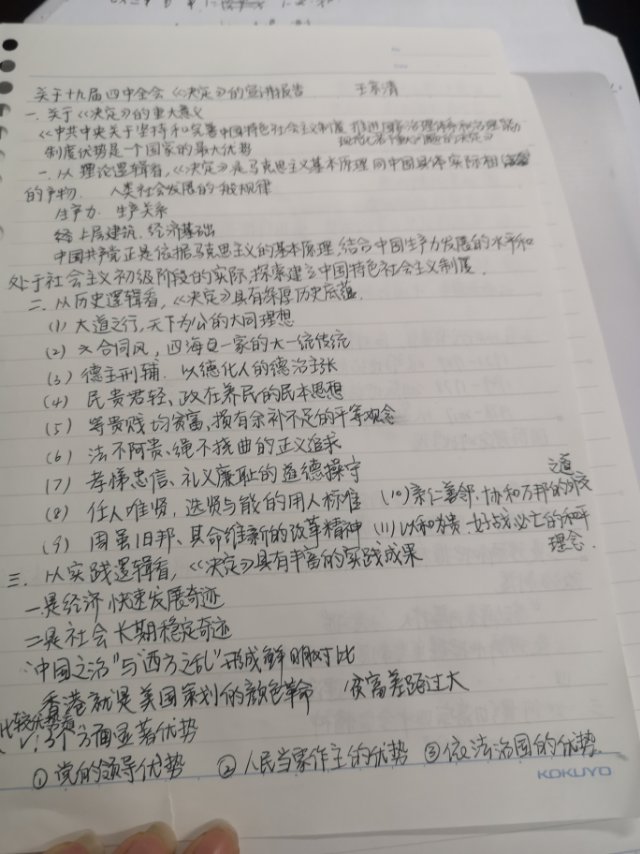 关于十九届四中全会《决定》的宣讲报告 王宗清
一.关于《决定》的重大意义
《中共中央关于坚持和完善中国特色社会主义制度 推进国家治理体系和治理能力
现代化若干重大问题的决定》
制度优势是一个国家的最大优势
一.从理论逻辑看,《决定》是马克思主义基本原理同中国具体实际相结合
的产物. 人类社会发展的一般规律
生产力 生产关系
上层建筑.经济基础
中国共产党正是依据马克思主义的基本原理,结合中国生产力发展的水平和
处于社会主义初级阶段的实际,探索建立中国特色社会主义制度.
二.从历史逻辑看,《决定》具有深厚历史底蕴.
(1) 大道之行,天下为公的大同理想
(2) 六合同风,四海一家的大一统传统
(3) 德主刑辅.以德化人的德治主张
(4) 民贵君轻、政在养民的民本思想
(5) 等贵贱均贫富,损有余补不足的平等观念
(6) 法不阿贵、绳不挠曲的正义追求
(7) 孝悌忠信、礼义廉耻的道德操守
(8) 任人唯贤,选贤与能的用人标准 (10)亲仁善邻.协和万邦的外交
之道
(9) 周虽旧邦、其命维新的改革精神 (11)以和为贵.好战必亡的和平
理念.
三.从实践逻辑看,《决定》具有丰富的实践成果
一是经济快速发展奇迹
二是社会长期稳定奇迹
"中国之治"与"西方之乱"形成鲜明对比
香港就是美国策划的颜色革命 贫富差距过大
13个方面显著优势
① 党的领导优势 ② 人民当家作主的优势 ③ 依法治国的优势.
KOKUYO